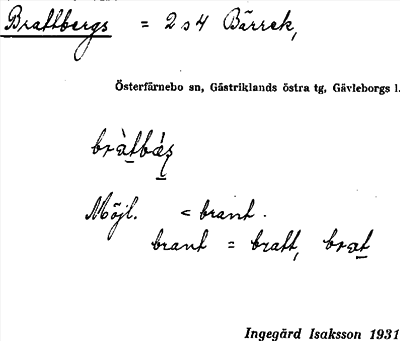 Brattbergs = 2 s 4 Bärrek,
Österfärnebo sn, Gästriklands östra tg, Gävleborgs l.
bràtbá̱s̱
Möjl. < brant.
brant = bratt, brat
Ingegärd Isaksson 1931